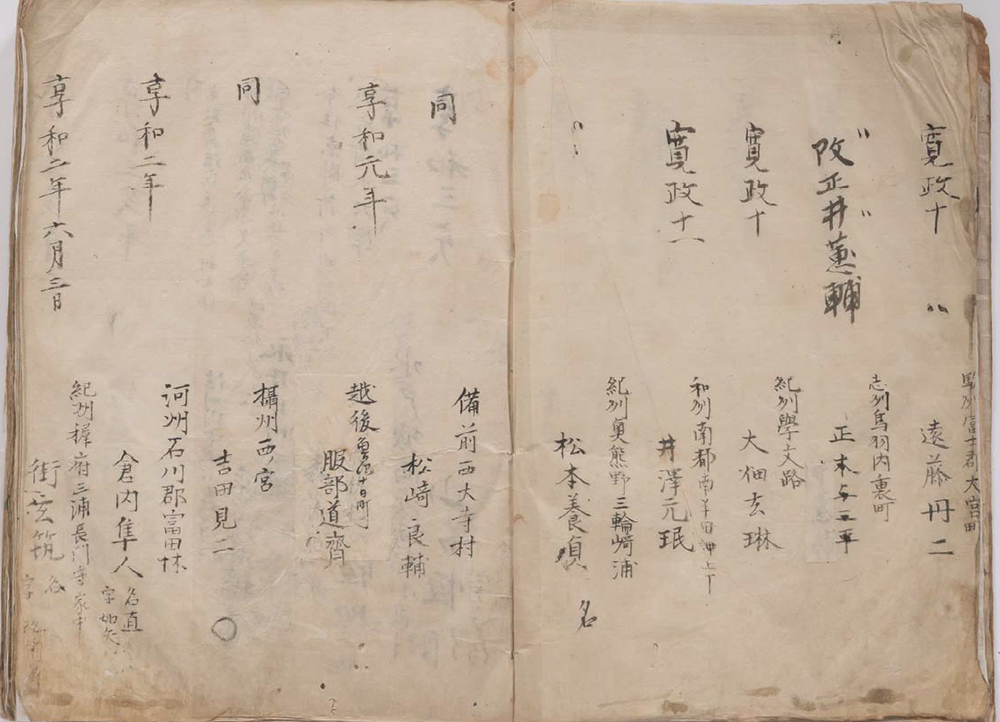 寛政十〃
駿州富士郡大宮町
遠藤丹二
改正井蕙輔
志州鳥羽内裏町
正木与三平
寛政十
紀州學文路
大畑玄琳
寛政十一
和州南都南半田
井澤元珉
〃
紀州奥熊野三輪﨑浦
松本養貞 名
同
備前西大寺村
松﨑良輔
享和元年
越後魚沼十日町
服部道齊
同
攝州西ノ宮
吉田見二 〇
享和二年
河州石川郡富田林
倉内隼人 名直
字
享和二年六月三日
紀州 府三浦長門守家中
街玄筑 名
字